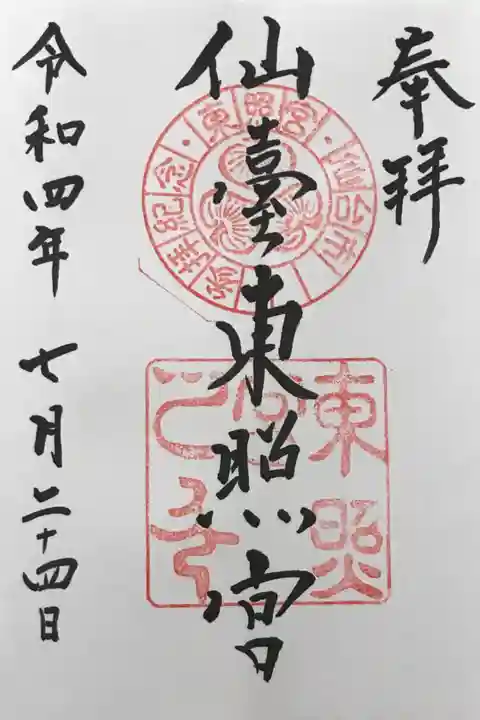 奉拝
仙臺東照宮
令和四年 七月二十四日
東照宮・仙台市・参拝記念
東照